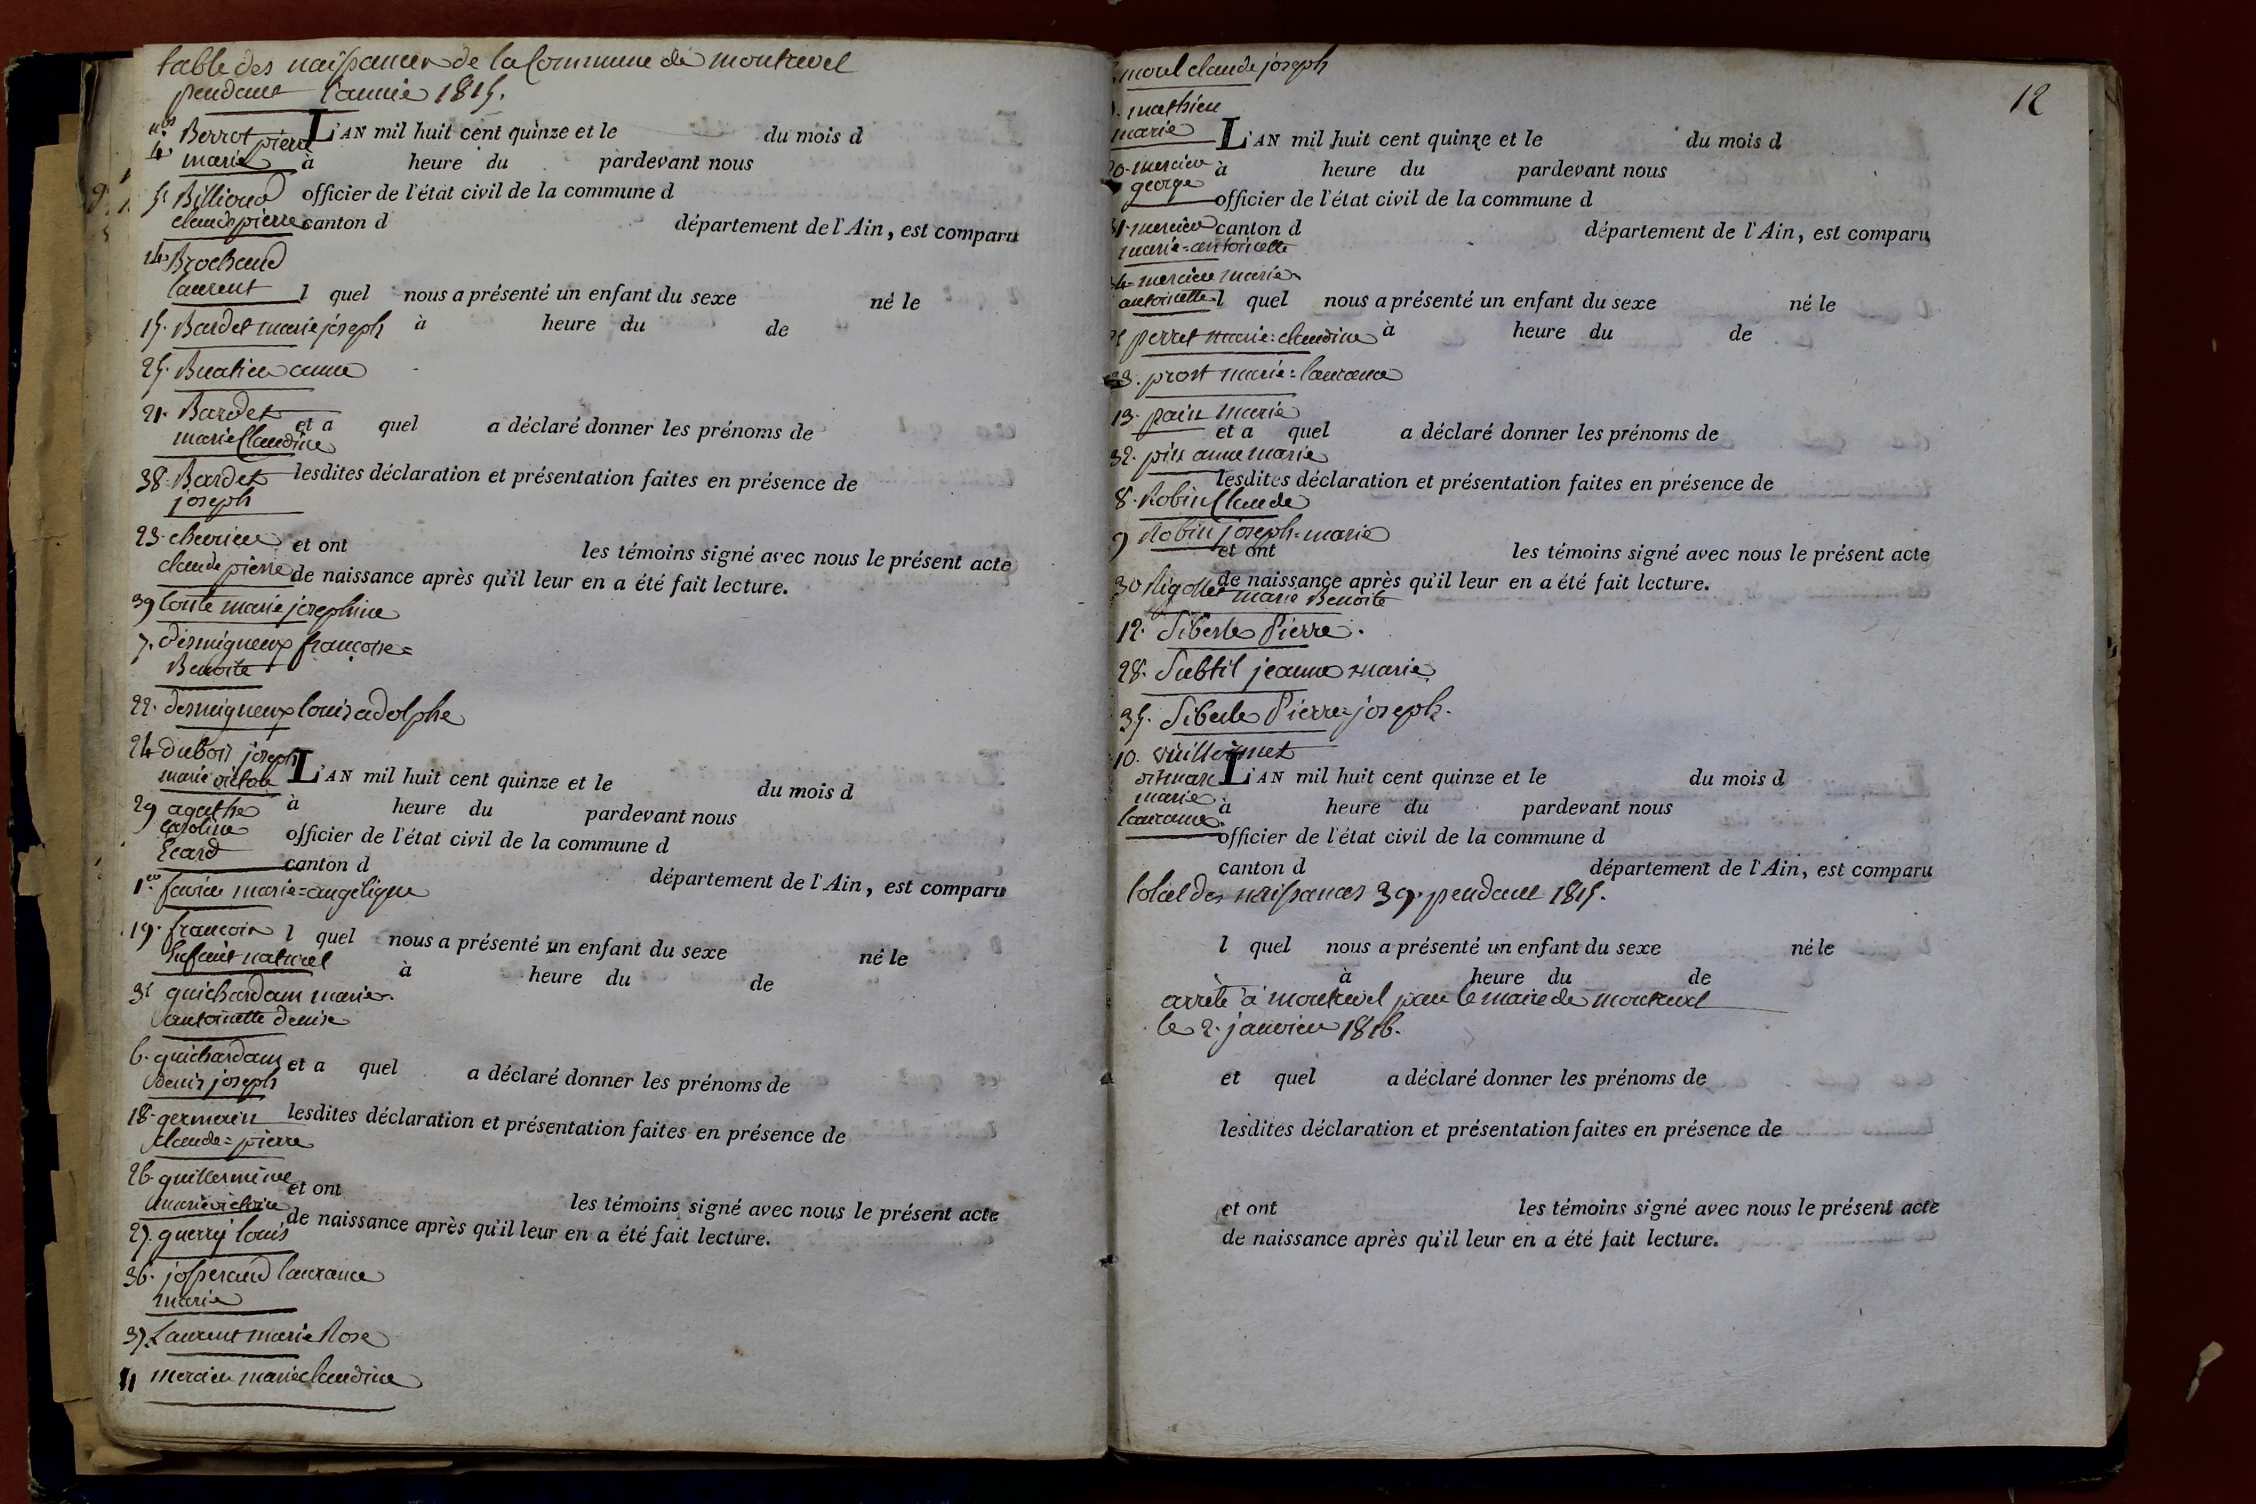 table des naissances de la Commune de montrevel
pendant l'année 1815.
nos
4. Berrot pierre
marie
5. Billioud
claude pierre
14. Brochand
laurent
15. Bardet marie joseph
25. Buatier anne
21. Bardet
marie Claudine
38. Bardet
joseph
23. chevrier
claude pierre
39 Conte marie josephine
7. desmigneux françoise=
Benoite
22. desmigneux louis adolphe
24 dubois joseph
marie victor
29 agathe
caroline
Ecard
1er favier marie=angelique
19. francois
Enfant naturel
3 guichardam marie
antoinette denise
6. guichardam
denis joseph
18. germain
claude=pierre
26. guillermine
marie victoire
27. guerry louis
36. josserand laurance
marie
37. Laurent marie Rose
11 mercier marie claudine
L'AN mil huit cent quinze et le du mois d
à heure du pardevant nous
officier de l'état civil de la commune d
canton d département de l'Ain, est comparu
l quel nous a présenté un enfant du sexe né le
à heure du de
et a quel a déclaré donner les prénoms de
lesdites déclaration et présentation faites en présence de
et ont les témoins signé avec nous le présent acte
de naissance après qu'il leur en a été fait lecture.
L'AN mil huit cent quinze et le du mois d
à heure du pardevant nous
officier de l'état civil de la commune d
canton d département de l'Ain, est comparu
l quel nous a présenté un enfant du sexe né le
à heure du de
et a quel a déclaré donner les prénoms de
lesdites déclaration et présentation faites en présence de
et ont les témoins signé avec nous le présent acte
de naissance après qu'il leur en a été fait lecture.
12
morel claude joseph
mathieu
marie
20. mercier
george
31. mercier
marie=antoinette
34. mercier marie
antoinette
perret marie=claudine
33. prost marie=laurance
13. pain marie
32. pin anne marie
8. Robin Claude
9 Robin joseph=marie
30 Rigollet marie Benoite
12. Siberle Pierre.
28. Subtil jeanne marie
35. Siberle Pierre=joseph.
10. vuillermet
marie
laurance
L'AN mil huit cent quinze et le du mois d
à heure du pardevant nous
officier de l'état civil de la commune d
canton d département de l'Ain, est comparu
l quel nous a présenté un enfant du sexe né le
à heure du de
et a quel a déclaré donner les prénoms de
lesdites déclaration et présentation faites en présence de
et ont les témoins signé avec nous le présent acte
de naissance après qu'il leur en a été fait lecture.
L'AN mil huit cent quinze et le du mois d
à heure du pardevant nous
officier de l'état civil de la commune d
canton d département de l'Ain, est comparu
total des naissances 39. pendant 1815.
l quel nous a présenté un enfant du sexe né le
à heure du de
arrêté à montrevel par le maire de montrevel
le 2. janvier 1816.
et quel a déclaré donner les prénoms de
lesdites déclaration et présentation faites en présence de
et ont les témoins signé avec nous le présent acte
de naissance après qu'il leur en a été fait lecture.